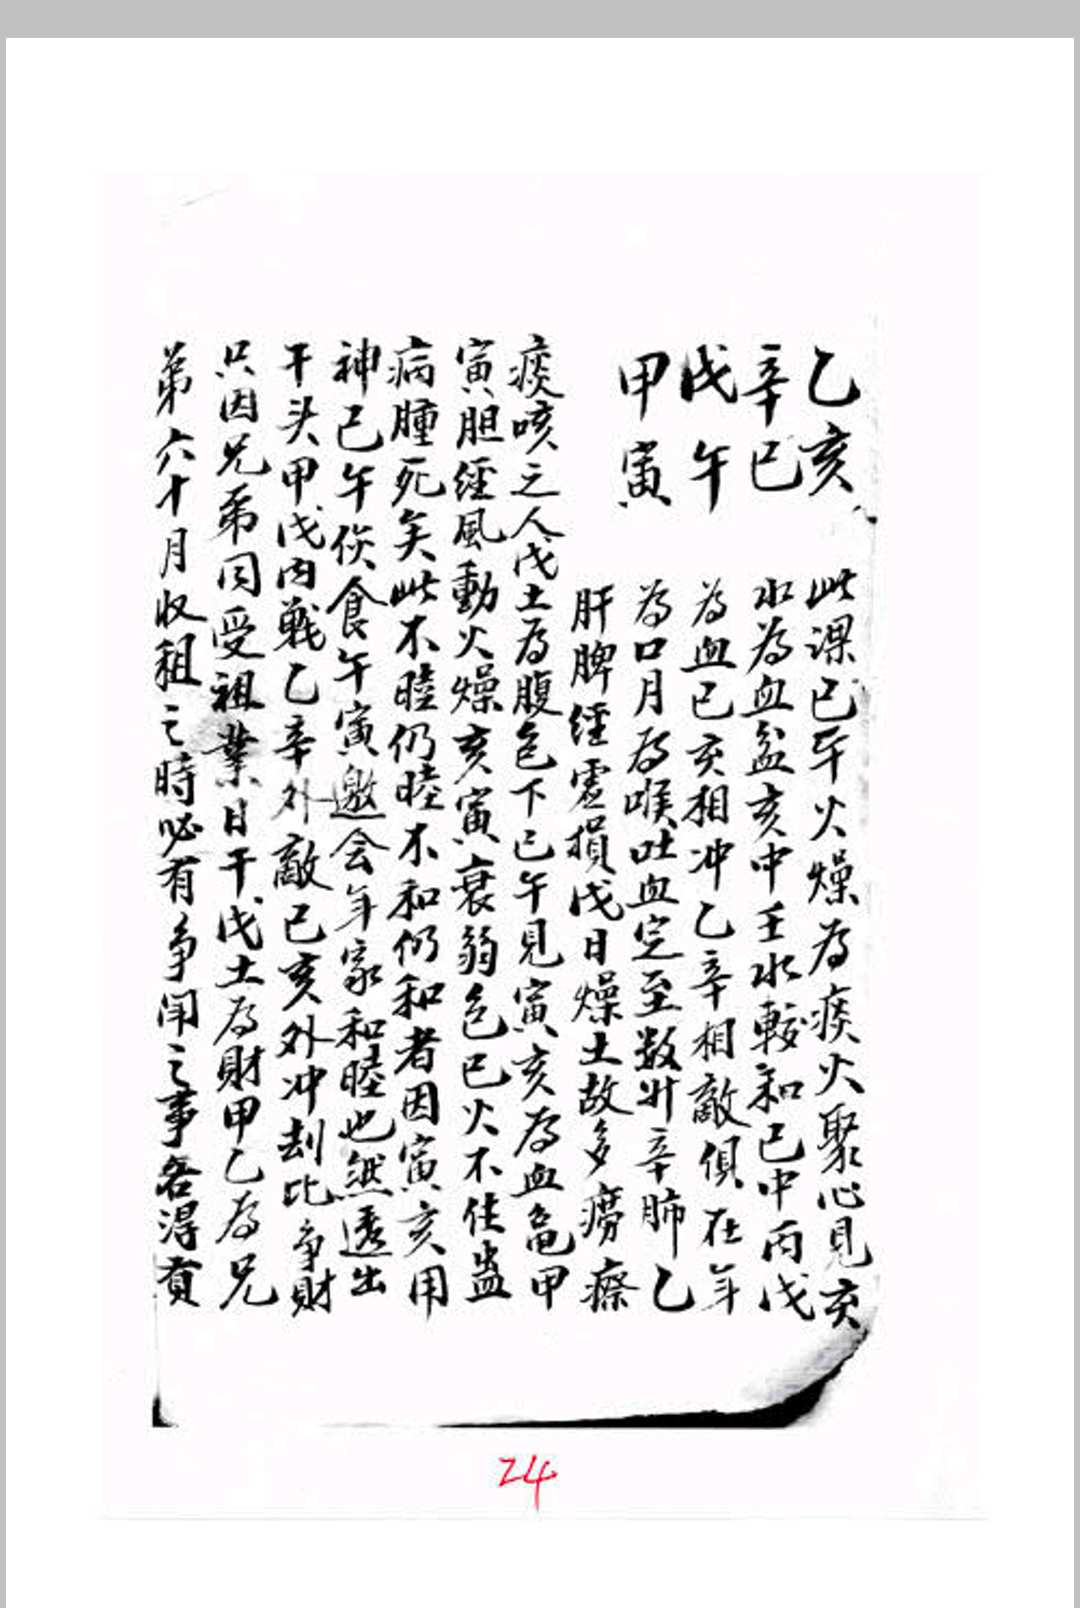 乙亥
辛巳
戊午
甲寅
此課巳午火燥為痰火聚心見亥
水為血盆亥中壬水較和巳中丙戊
為血巳亥相冲乙辛相敵俱在年
為口月為喉吐血定至数升辛肺乙
肝脾經虛損戊日燥土故多癆瘵
痰咳之人戊土為腹包下巳午見寅亥為血黽甲
寅胆經風動火燥亥寅衰弱包巳火不住蠱
病腫死矣此不睦仍睦不和仍和者因寅亥用
神巳午伙食午寅邀会年家和睦也然透出
干头甲戊内戦乙辛外敵巳亥外冲刦比争財
只因兄弟同受祖業日干戊土為財甲乙為兄
弟六十月收租之時必有争闹之事各得有
24